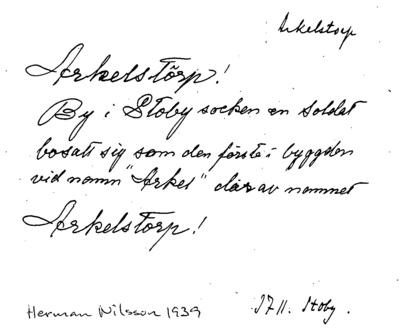 Arkelstorp
Arkelstorp!
By i Stoby socken en soldat
bosatt sig som den förste i byggden
vid namn "Arkel" därav namnet
Arkelstorp!
Herman Nilsson 1939
1711. Stoby.